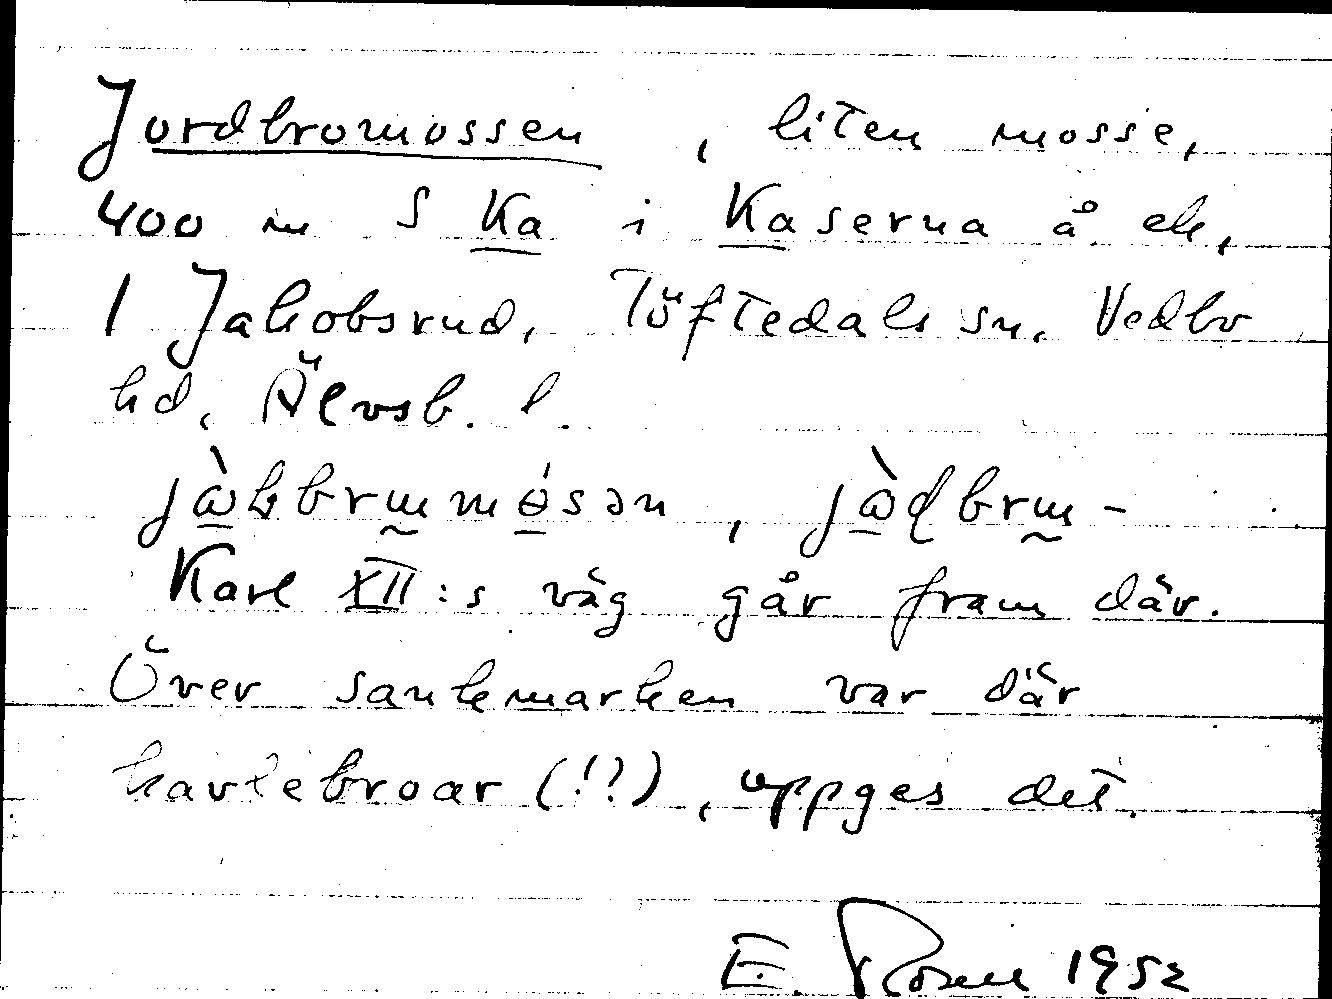 Jordbromossen, liten mosse,
400 m S Ka i Kaserna å ek,
1 Jakobsrud, Töftedals sn. Vedbo
hd, Älvsb. l.
Karl XII:s väg går fram där.
Över sankmarken var där
kavlebroar (!?), uppges det.
E. Rosen 1952